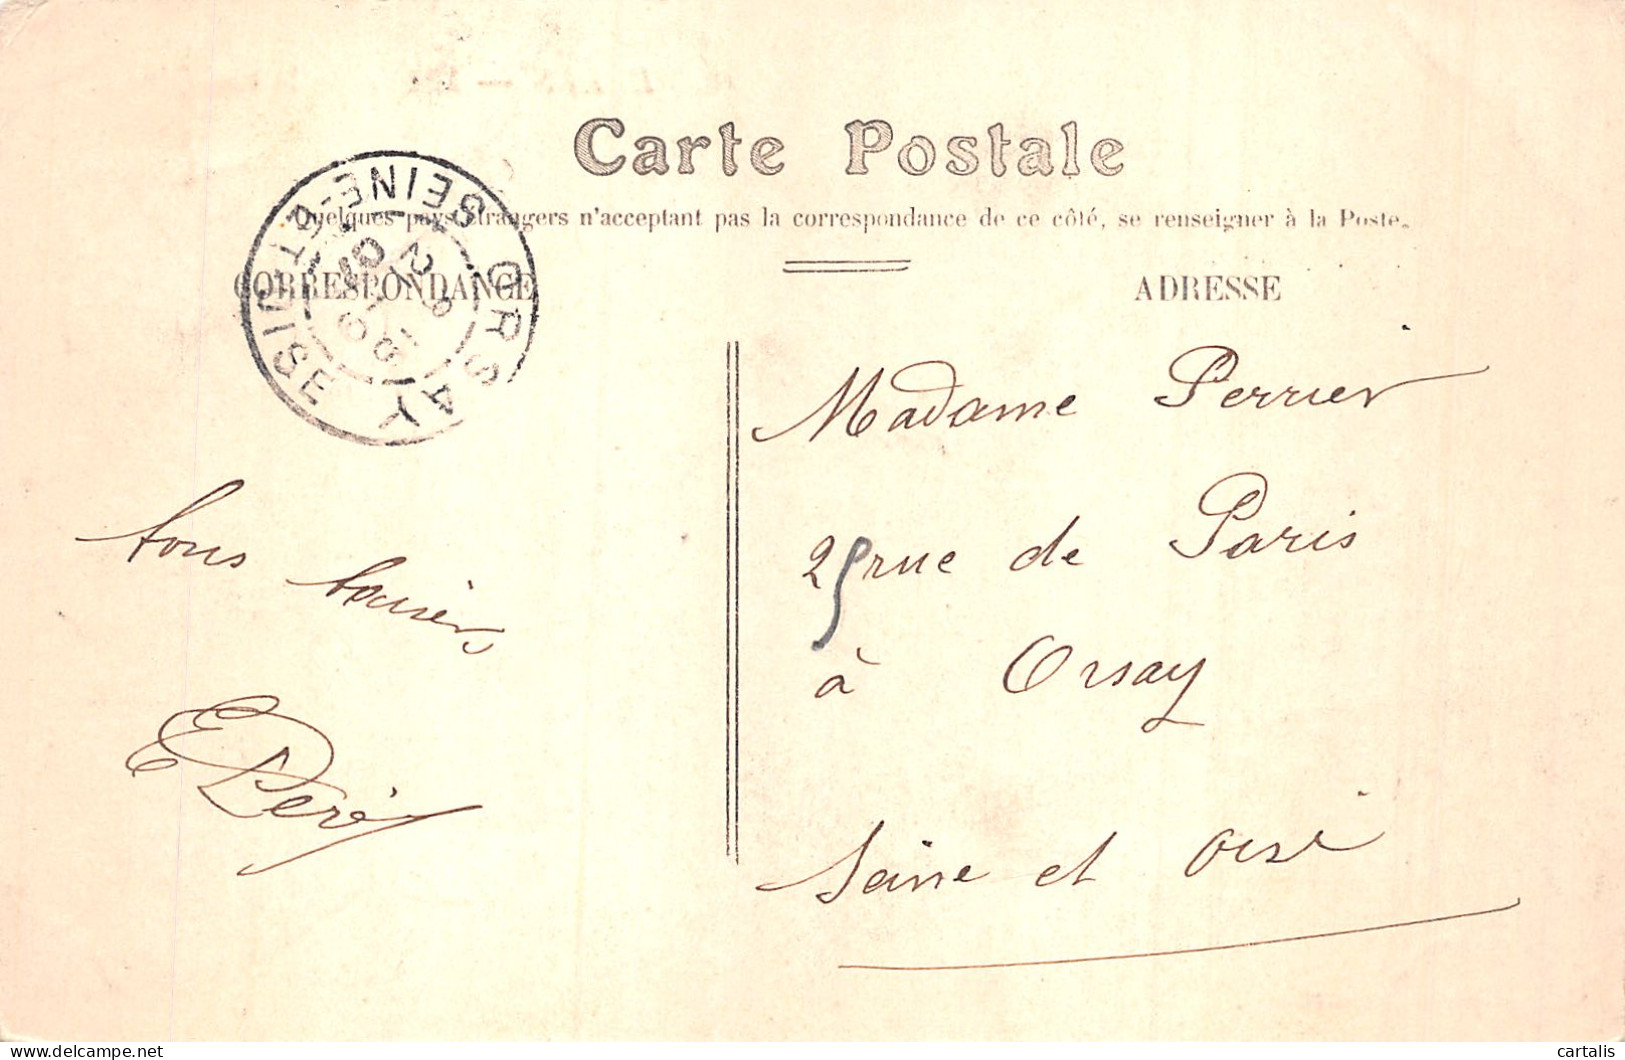 Carte Postale
Quelques pays étrangers n'acceptant pas la correspondance de ce côté, se renseigner à la Poste.
CORRESPONDANCE
ADRESSE
ORSAY
SEINE-ET-OISE
Madame Perrier
25 rue de Paris
à Orsay
Seine et Oise
bons baisers
E Peré
cartalis